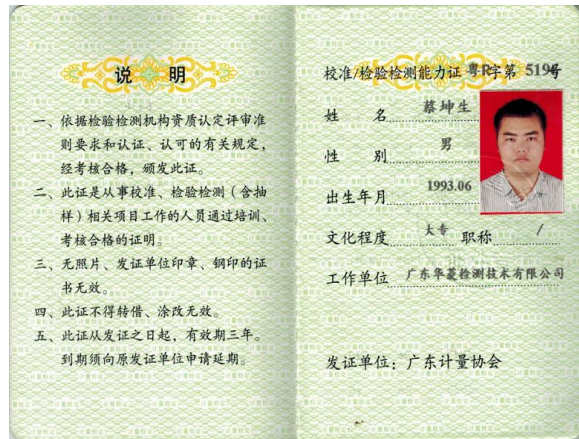 说 明
一、依据检验检测机构资质认定评审准
则要求和认证、认可的有关规定，
经考核合格，颁发此证。
二、此证是从事校准、检验检测（含抽
样）相关项目工作的人员通过培训、
考核合格的证明。
三、无照片、发证单位印章、钢印的证
书无效。
四、此证不得转借、涂改无效。
五、此证从发证之日起，有效期三年。
到期须向原发证单位申请延期。
校准/检验检测能力证 粤R字第 5194号
姓 名 蔡坤生
性 别 男
出生年月 1993.06
文化程度 大专 职称 /
工作单位 广东华菱检测技术有限公司
发证单位：广东计量协会